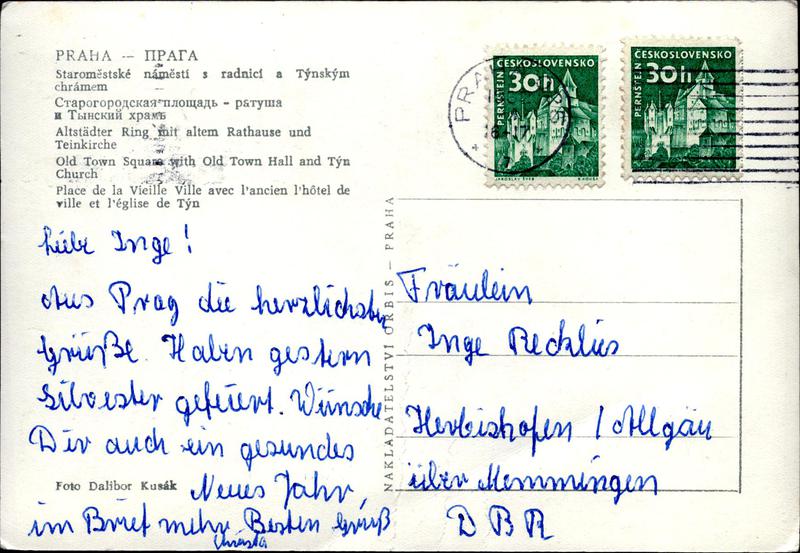 PRAHA — ПРАГА
Staroměstské náměstí s radnicí a Týnským
chrámem
Старогородская площадь - ратуша
и Тынский храмъ
Altstädter Ring mit altem Rathause und
Teinkirche
Old Town Square with Old Town Hall and Týn
Church
Place de la Vieille Ville avec l'ancien l'hôtel de
ville et l'église de Týn
liebe Inge!
Aus Prag die herzlichsten
Grüße. Haben gestern
Silvester gefeiert. Wünsche
Dir auch ein gesundes
Neues Jahr,
im Brief mehr. Besten Gruß
Foto Dalibor Kusák
NAKLADATELSTVÍ ORBIS — PRAHA
ČESKOSLOVENSKO
30h
PERNŠTEJN
JAROSLAV ŠVÁB
ČESKOSLOVENSKO
30h
PERNŠTEJN
PRAHA
Fräulein
Inge Recklies
Herbishofen / Allgäu
über Memmingen
DBR